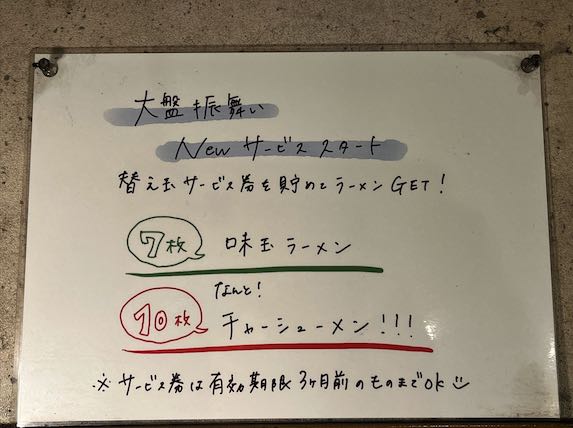 大盤振舞い
New サービススタート
替え玉サービス券を貯めてラーメンGET!
7枚 味玉ラーメン
なんと!
10枚 チャーシューメン!!!
※サービス券は有効期限3ヶ月前のものまでOK